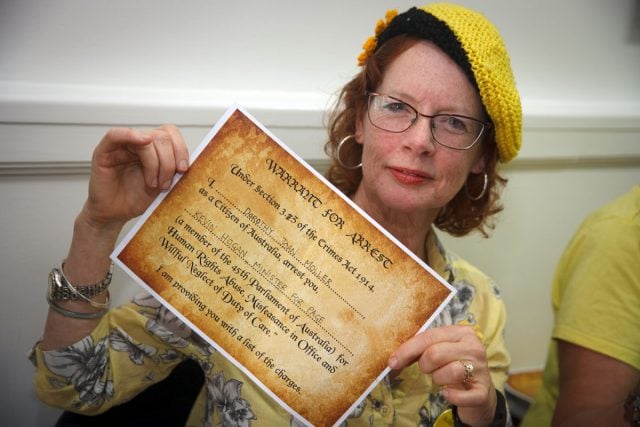 WARRANT FOR ARREST
Under Section 3.Z3 of the Crimes Act 1914.
I, DOROTHY JOAN MOLLER
as a Citizen of Australia, arrest you,
KEVIN HOGAN MINISTER FOR PAGE
(a member of the 45th Parliament of Australia) for
Human Rights Abuse, Misfeasance in Office and
Wilful Neglect of Duty of Care."
I am providing you with a list of the charges.